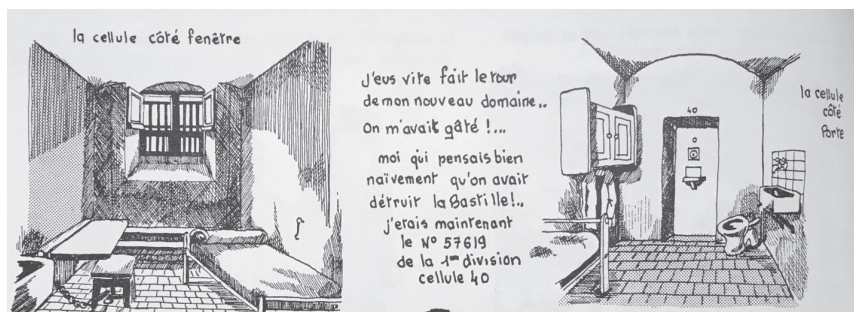 la cellule côté fenêtre
J'eus vite fait le tour
de mon nouveau domaine..
On m'avait gâté !...
moi qui pensais bien
naïvement qu'on avait
détruit la Bastille!..
j'erais maintenant
le N° 57619
de la 1ère division
cellule 40
40
la cellule
côté
Porte